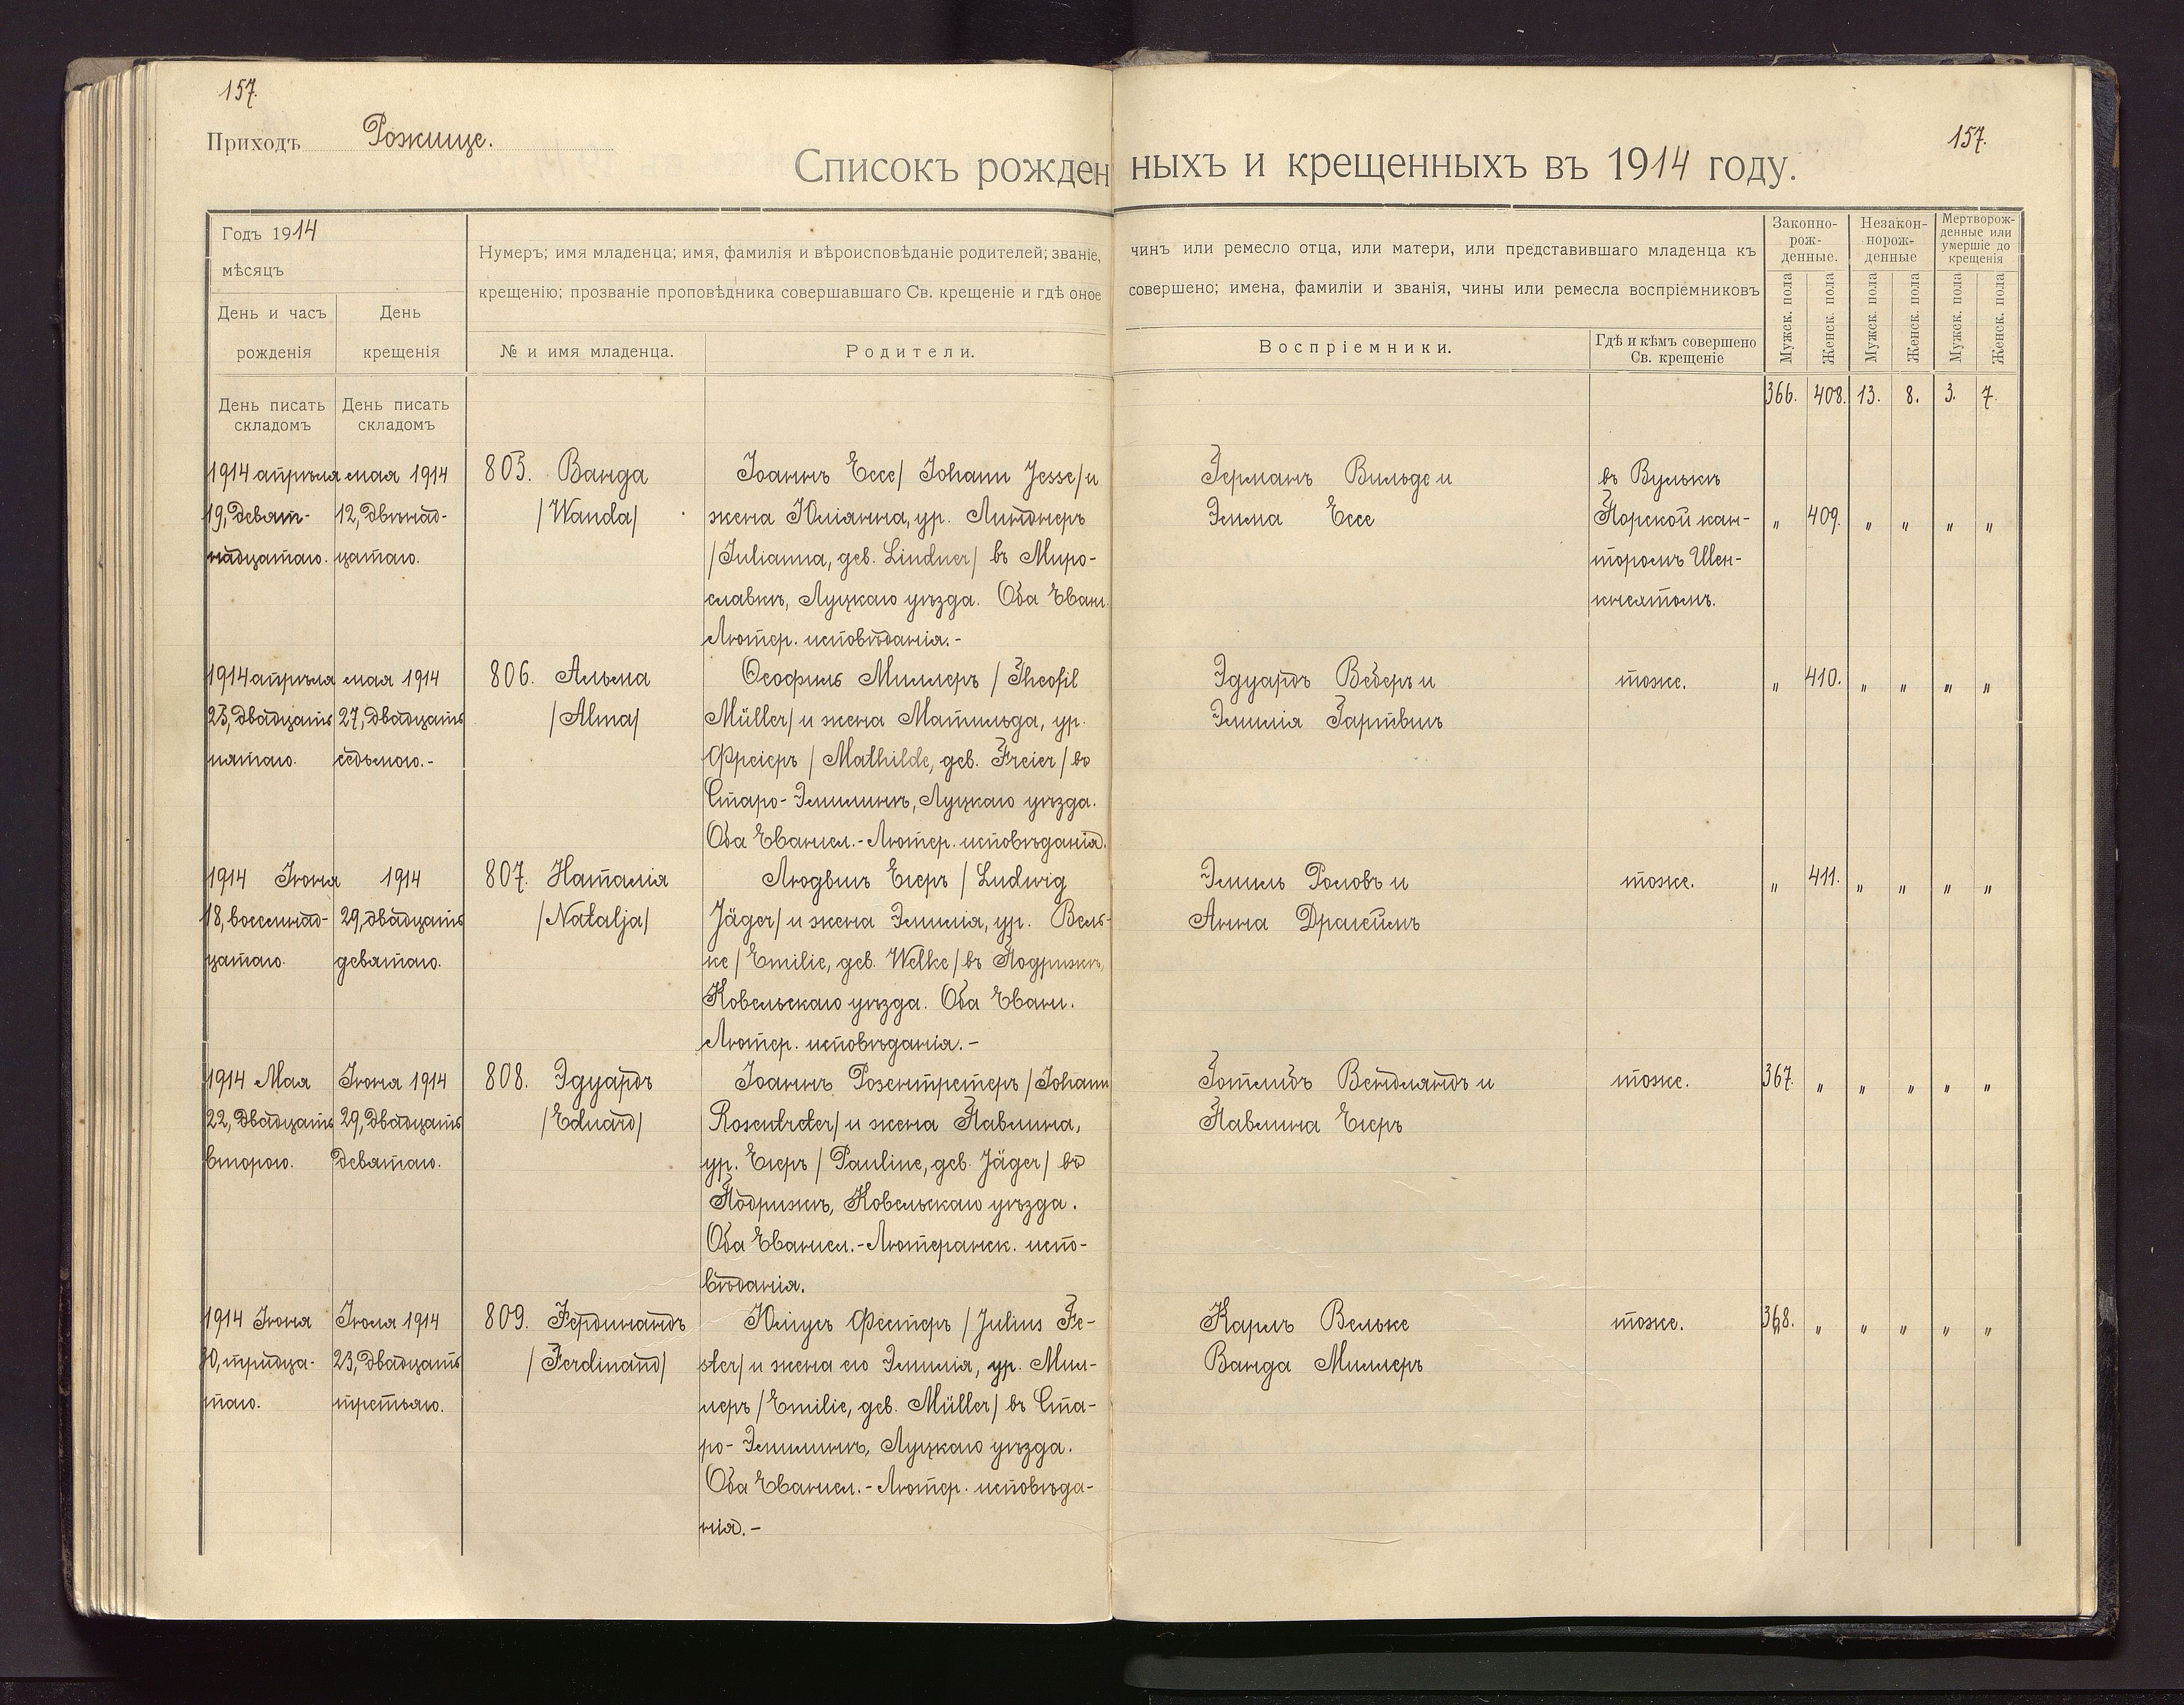 157.
Приходъ Рожище.
157.
Списокъ рожденныхъ и крещенныхъ въ 1914 году.
Годъ 1914
мѣсяцъ
День и часъ рожденія
День крещенія
Нумеръ; имя младенца; имя, фамилія и вѣроисповѣданіе родителей; званіе, чинъ или ремесло отца, или матери, или представившаго младенца къ
крещенію; прозваніе проповѣдника совершавшаго Св. крещеніе и гдѣ оное совершено; имена, фамиліи и званія, чины или ремесла воспріемниковъ
№ и имя младенца.
Родители.
Воспріемники.
Гдѣ и кѣмъ совершено
Св. крещеніе
Законно-
рож-
денные.
Незакон-
норож-
денные
Мертворож-
денные или
умершіе до
крещенія
Мужск. пола
Женск. пола
Мужск. пола
Женск. пола
Мужск. пола
Женск. пола
День писать
складомъ
День писать
складомъ
366. 408. 13. 8. 3. 7.
1914 апрѣля
19, девят-
надцатаго.
мая 1914
12, двѣнад-
цатаго.
805. Ванда
/Wanda/
Іоаннъ Ессе / Johann Jesse / и
жена Юліанна, ур. Линднеръ
/Julianna, geb. Lindner/ въ Миро-
славкѣ, Луцкаго уѣзда. Оба Еванг.
Лютер. исповѣданія.-
Германъ Вильде и
Эмма Ессе
въ Вулькѣ
Порской кан-
торомъ Шен-
кнехтомъ.
" 409. " " " "
1914 апрѣля
25, двадцать
пятаго.
мая 1914
27, двадцать
седьмого.-
806. Альма
/Alma/
Ѳеофилъ Миллеръ / Theofil
Müller/ и жена Матильда, ур.
Фрeіеръ / Mathilde, geb. Freier / въ
Старо-Эмилинѣ, Луцкаго уѣзда.
Оба Евангел.-Лютер. исповѣданія.
Эдуардъ Веберъ и
Эмилія Гартвигъ
тоже.
" 410. " " " "
1914 Іюня
18, восемнад-
цатаго.
1914
29, двадцать
девятаго.
807. Наталія
/Natalja/
Людвигъ Егеръ / Ludwig
Jäger/ и жена Эмилія, ур. Вель-
ке / Emilie, geb. Welke / въ Подрижѣ,
Ковельскаго уѣзда. Оба Еванг.
Лютер. исповѣданія.-
Эмиль Роловъ и
Анна Драгеймъ
тоже.
" 411. " " " "
1914 Мая
22, двадцать
второго.
Іюня 1914
29, двадцать
девятаго.
808. Эдуардъ
/Eduard/
Іоаннъ Розентретеръ / Johann
Rosentreter/ и жена Павлина,
ур. Егеръ / Pauline, geb. Jäger/ въ
Подрижѣ, Ковельскаго уѣзда.
Оба Евангел.-Лютеранск. испо-
вѣданія.
Готлибъ Вендляндъ и
Павлина Егеръ
тоже.
367. " " " " "
1914 Іюня
30, тридца-
таго.
Іюля 1914
23, двадцать
третьяго.
809. Фердинандъ
/Ferdinand/
Юліусъ Фестеръ / Julius Fe-
ster/ и жена его Эмилія, ур. Мил-
леръ / Emilie, geb. Müller/ въ Ста-
ро-Эмилинѣ, Луцкаго уѣзда.
Оба Евангел.-Лютер. исповѣда-
нія.-
Карлъ Вельке
Ванда Миллеръ
тоже.
368. " " " " "